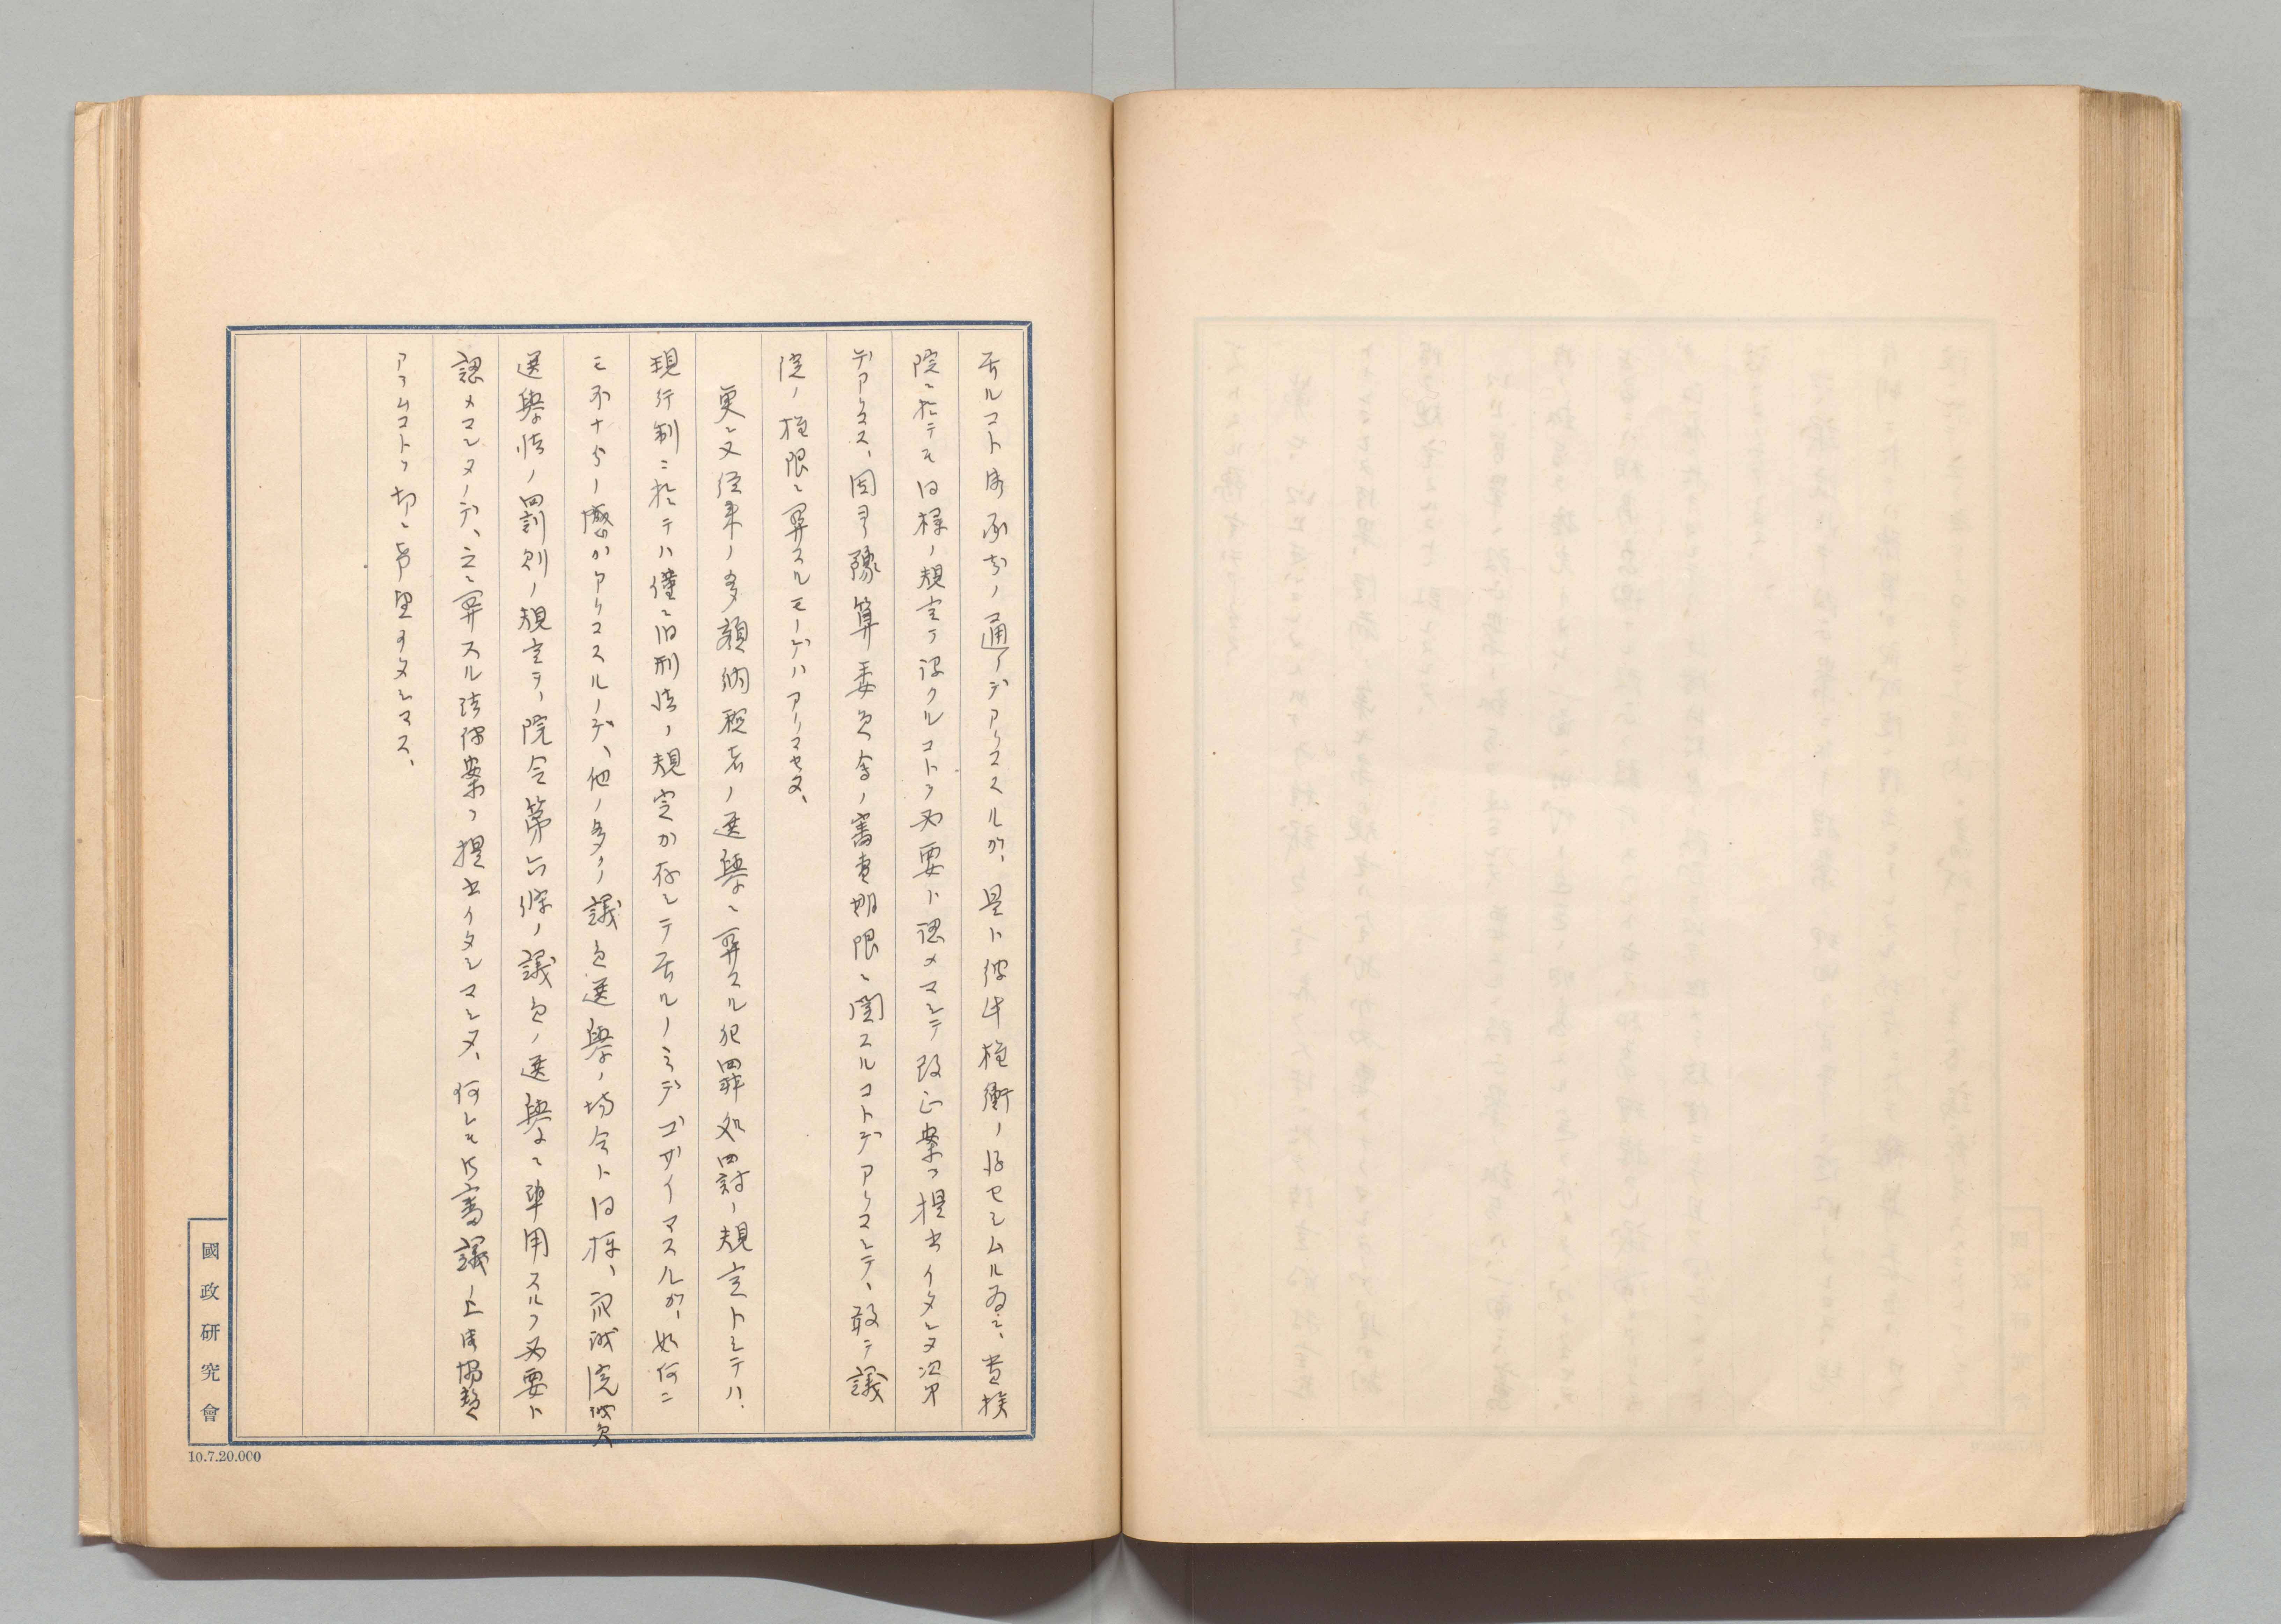 居ルコト御承知ノ通リデアリマスルガ、是ト彼此権衡ノ得セシムル為ニ、貴族
院ニ於テモ同様ノ規定ヲ設クルコトヲ必要ト認メマシテ改正案ヲ提出イタシタ次第
デアリマス、固ヨリ豫算委員会ノ審査期限ニ関スルコトデアリマシテ、敢テ議
院ノ権限ニ関スルモノデハアリマセヌ、
更ニ又従来ノ多額納税者ノ選挙ニ関スル犯罪処罰ノ規定トシテハ、
現行制ニ於テハ僅ニ旧刑法ノ規定が存シテ居ルノミデゴザイマスルガ、如何ニ
モ不十分ノ憾がアリマスルノデ、他ノ多クノ議員選挙ノ場合ト同様、衆議院議員
選挙法ノ罰則ノ規定ヲ、院令第六條ノ議員ノ選挙ニ準用スルヲ必要ト
認メマシタノデ、之ニ関スル法律案ヲ提出イタシマシタ、何レモ御審議ノ上御協賛
アランコトヲ切ニ希望イタシマス、
國政研究會
10.7.20.000